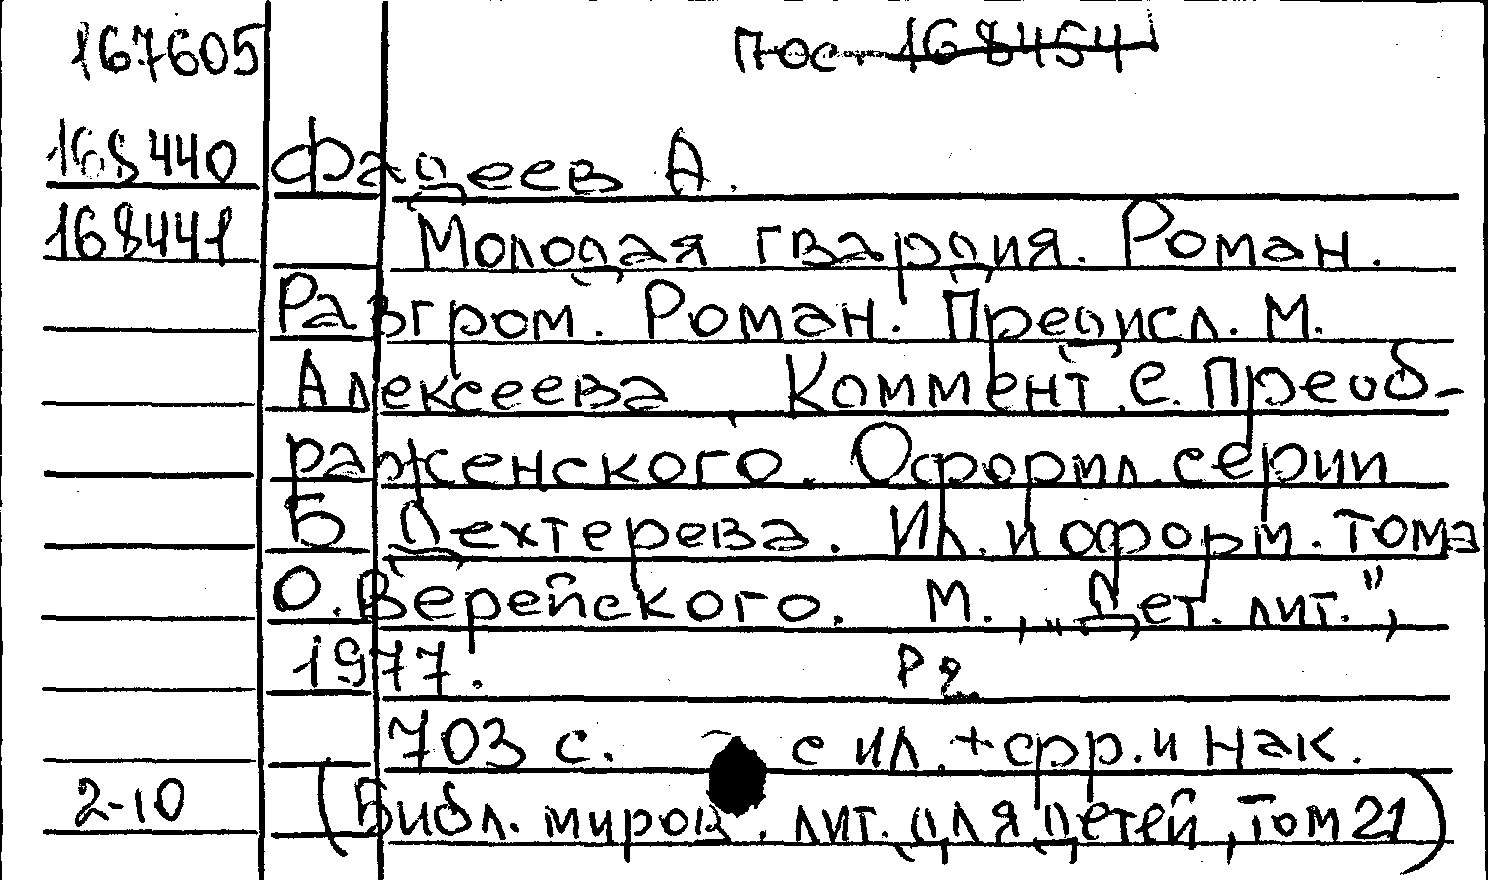 167605 Пос 168454
168440 Фадеев А.
168441 Молодая гвардия. Роман.
Разгром. Роман. Предисл. М.
Алексеева. Коммент. С. Преоб-
раженского. Оформл. серии
Б Дехтерева. Ил. и оформ. тома
О. Верейского. М., „Дет. лит.",
1977.
703 с. с ил. + фр. и нак.
2-10 (Библ. миров. лит. для детей, том 21)